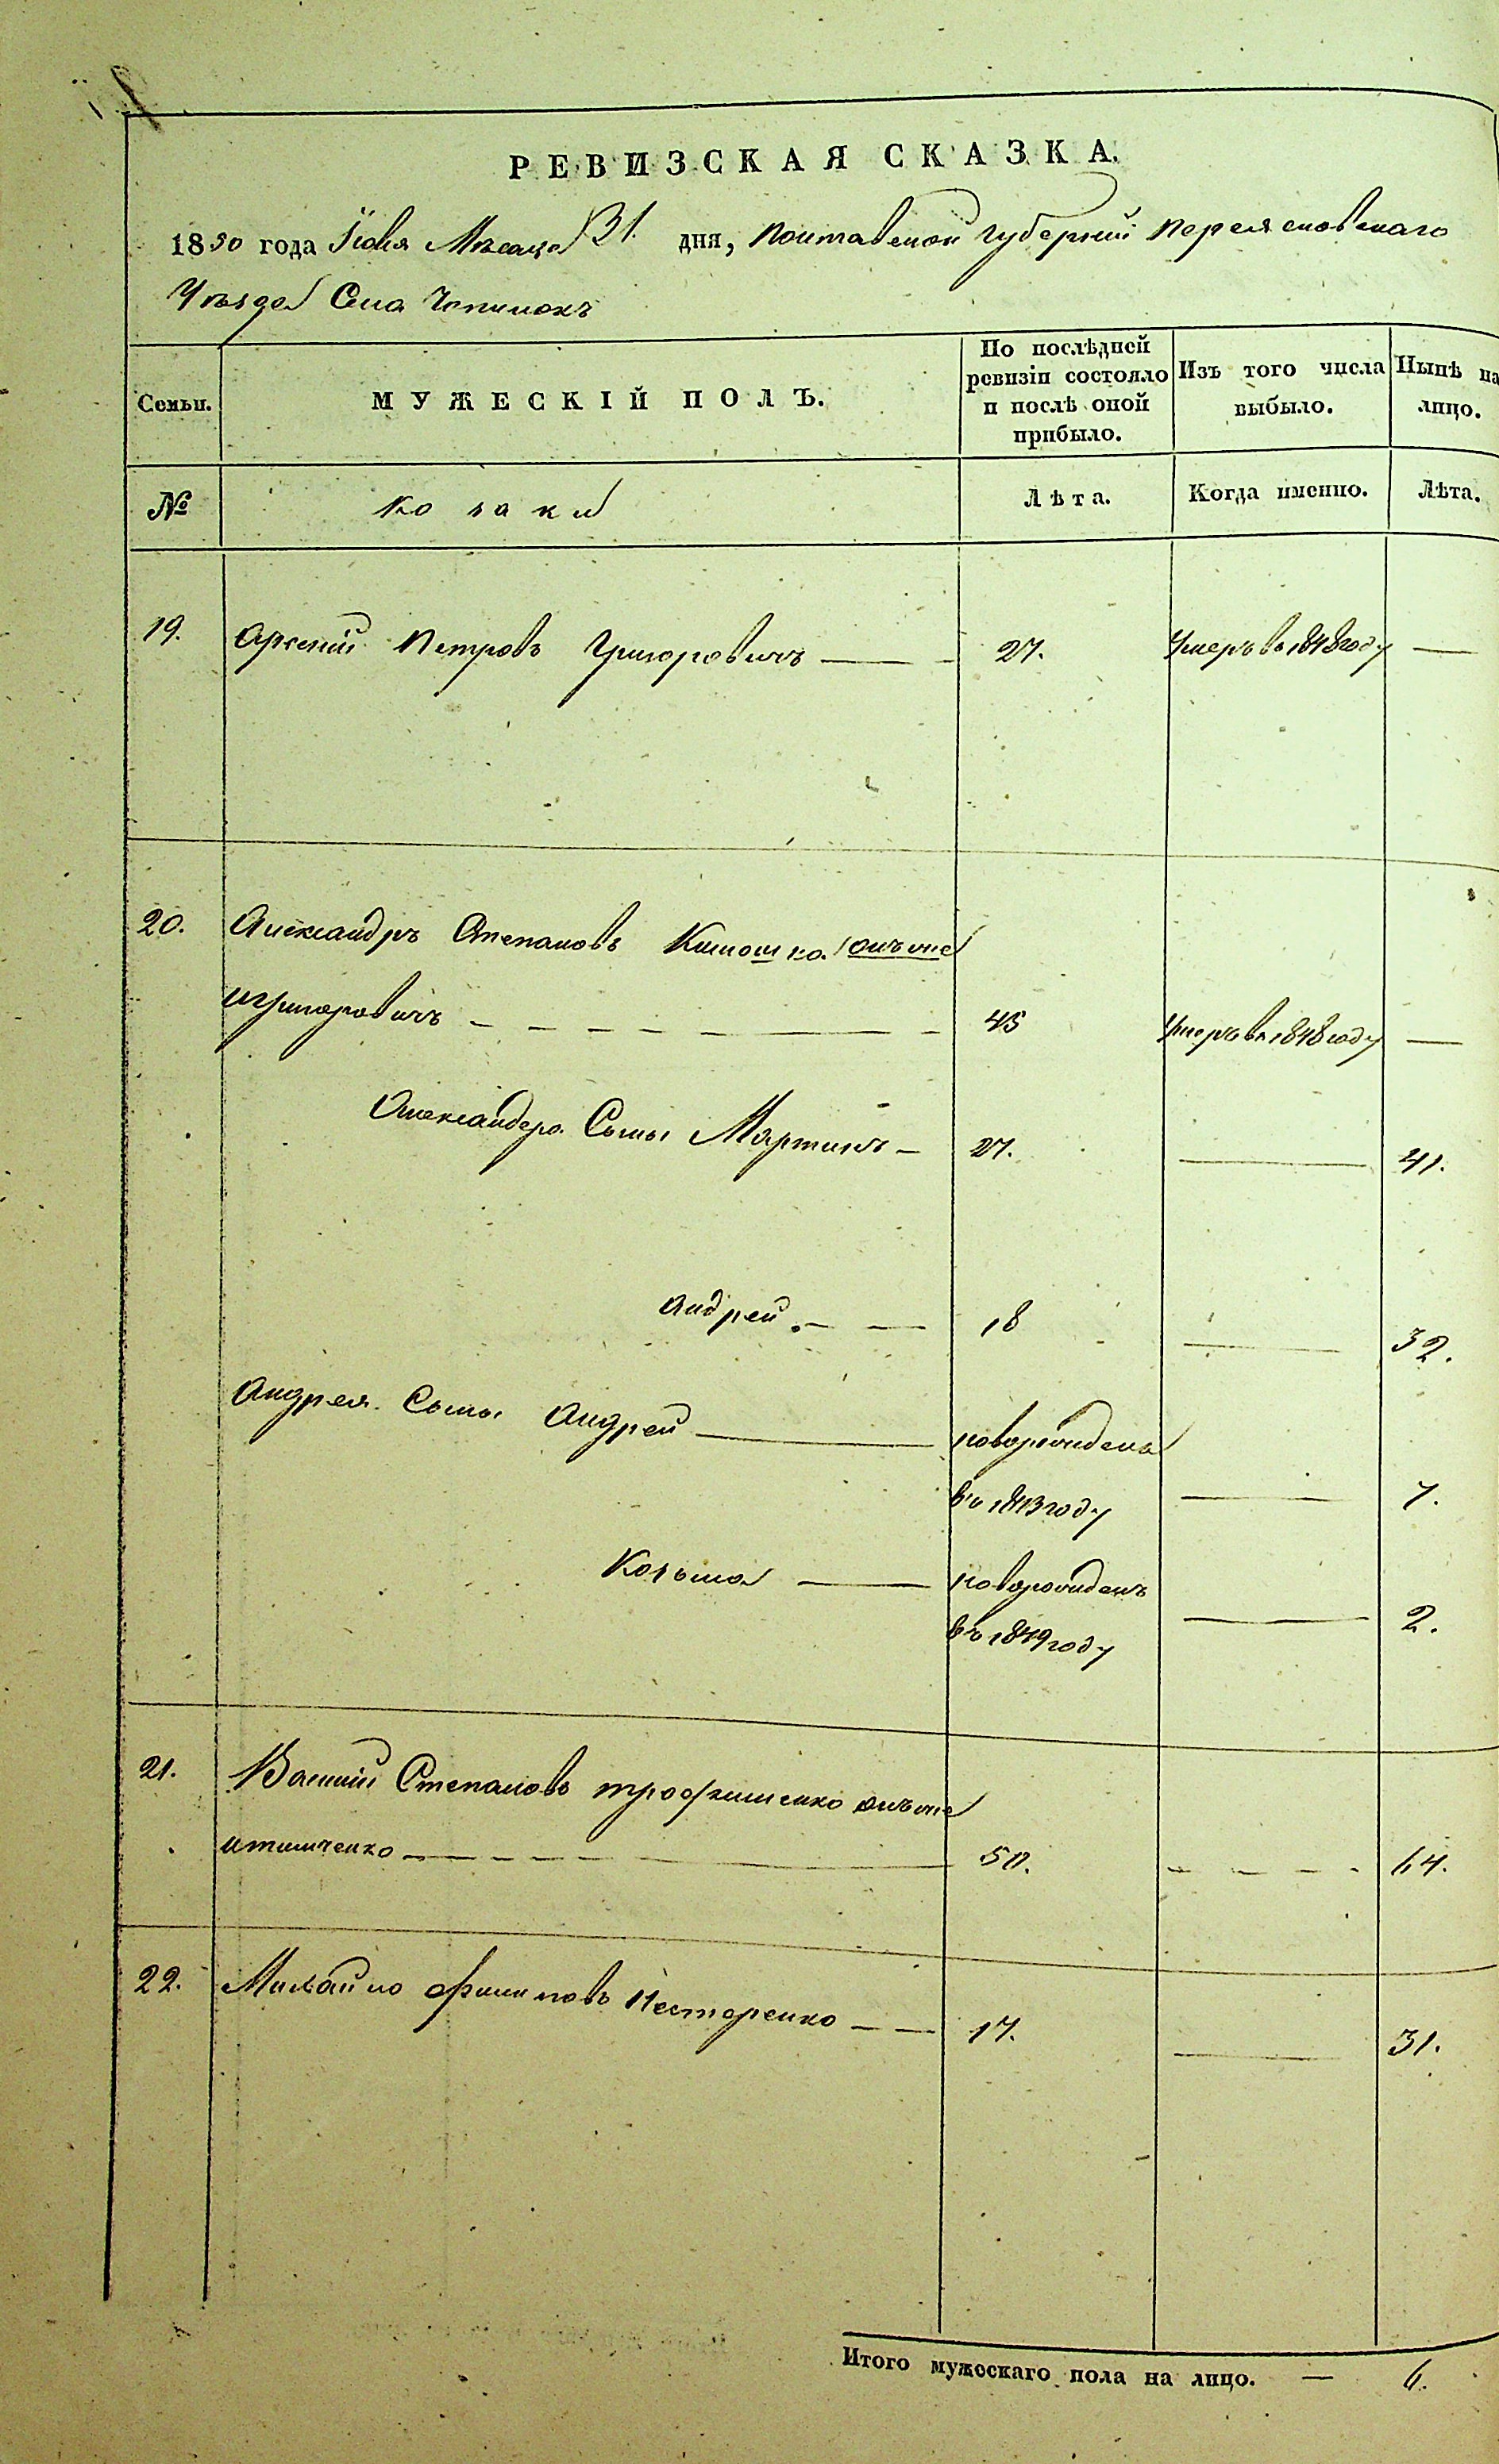 РЕВИЗСКАЯ СКАЗКА.
1850 года Іюля Мѣсяца 31. дня, Полтавской губерніи Переясловскаго
Уѣзда Села Чопилокъ
Семьи.
МУЖЕСКІЙ ПОЛЪ.
По послѣдней ревизіи состояло и послѣ оной прибыло.
Изъ того числа выбыло.
Нынѣ на лицо.
№
козаки
Лѣта.
Когда именно.
Лѣта.
19. Арсеній Петровъ Григоровичъ — 27. Умеръ въ 1848 году —
20. Александръ Степановъ Кишошка онъ же
и Григоровичъ — 45 Умеръ въ 1848 году —
Александра Сыны Мартинъ — 27. — 41.
Андрей — 18 — 32.
Андрея Сыны Андрей — новорожденъ
въ 1843 году — 7.
Козьма — новорожденъ
въ 1849 году — 2.
21. Василій Степановъ Трофименко онъ же
и Тимченко — 50. — 64.
22. Михайло Филиповъ Нестеренко — 17. — 31.
Итого мужескаго пола на лицо. — 6.